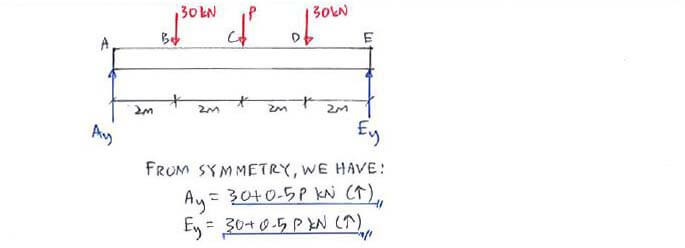 30kN P 30kN
A B C D E
2m 2m 2m 2m
Ay Ey
FROM SYMMETRY, WE HAVE:
Ay = 30+0.5P kN (↑)
Ey = 30+0.5P kN (↑)